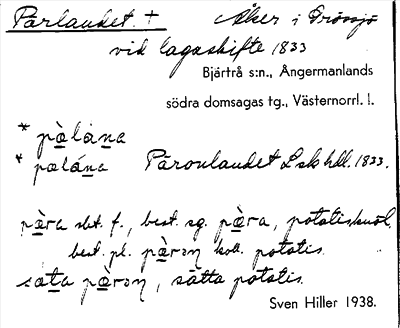 Pärlandet. + Åker i Grössjö
vid lagaskifte 1833
Bjärtrå s:n., Ångermanlands
södra domsagas tg., Västernorrl. l.
* pàlána
* palána Päronlandet Lsk hdl. 1833.
pàra sbt. f., best. sg. pàra, potatisknöl
best. pl. pàrɷn koll. potatis.
sàta pàrɷn, sätta potatis.
Sven Hiller 1938.